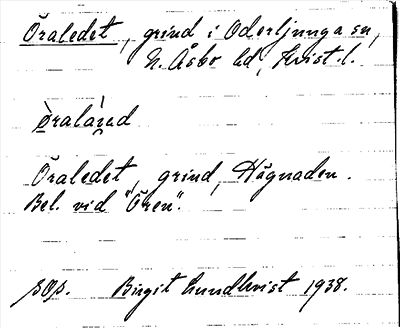 Öraledet, grind i Oderljunga sn,
N. Åsbo hd, Krist. l.
Öraledet, grind, Hägnaden.
Bel. vid "Ören".
Birgit Lundkvist 1938.